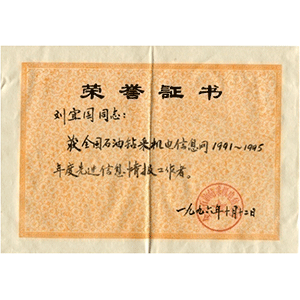 荣誉証书
刘宜国同志:
获全国石油钻采机电信息网1991~1995
年度先进信息情报工作者。
一九九六年十月十二日